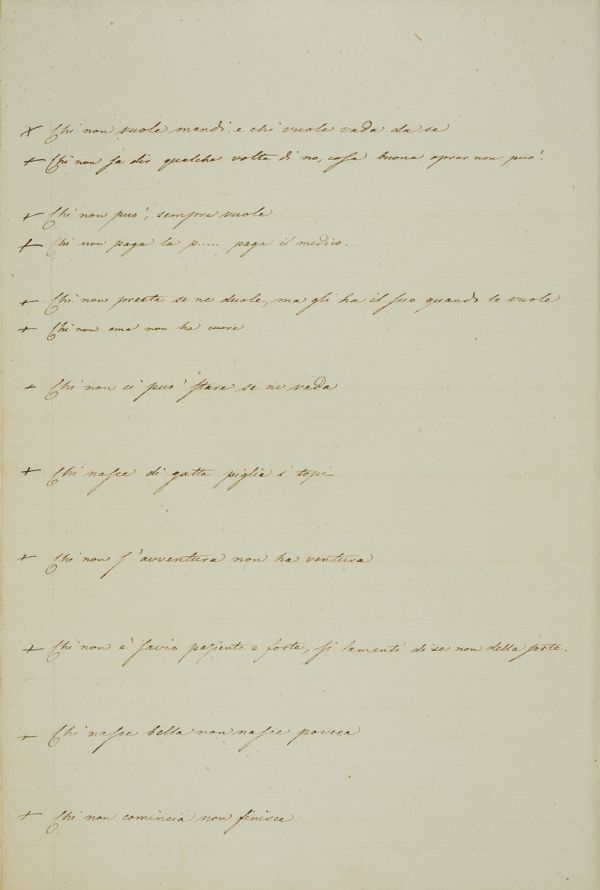 + Chi non vuole mandi, e chi vuole vada da se
+ Chi non sa dir qualche volta di no, cosa buona oprar non può.
+ Chi non può, sempre vuole
+ Chi non paga la p..... paga il medico.
+ Chi non presta se ne duole, ma gli ha il suo quando lo vuole
+ Chi non ama non ha cuore
+ Chi non ci può stare se ne vada
+ Chi nasce di gatta piglia i topi
+ Chi non s'avventura non ha ventura
+ Chi non è savio paziente e forte, si lamenti di se non della sorte.
+ Chi nasce bella non nasce povera
+ Chi non comincia non finisce